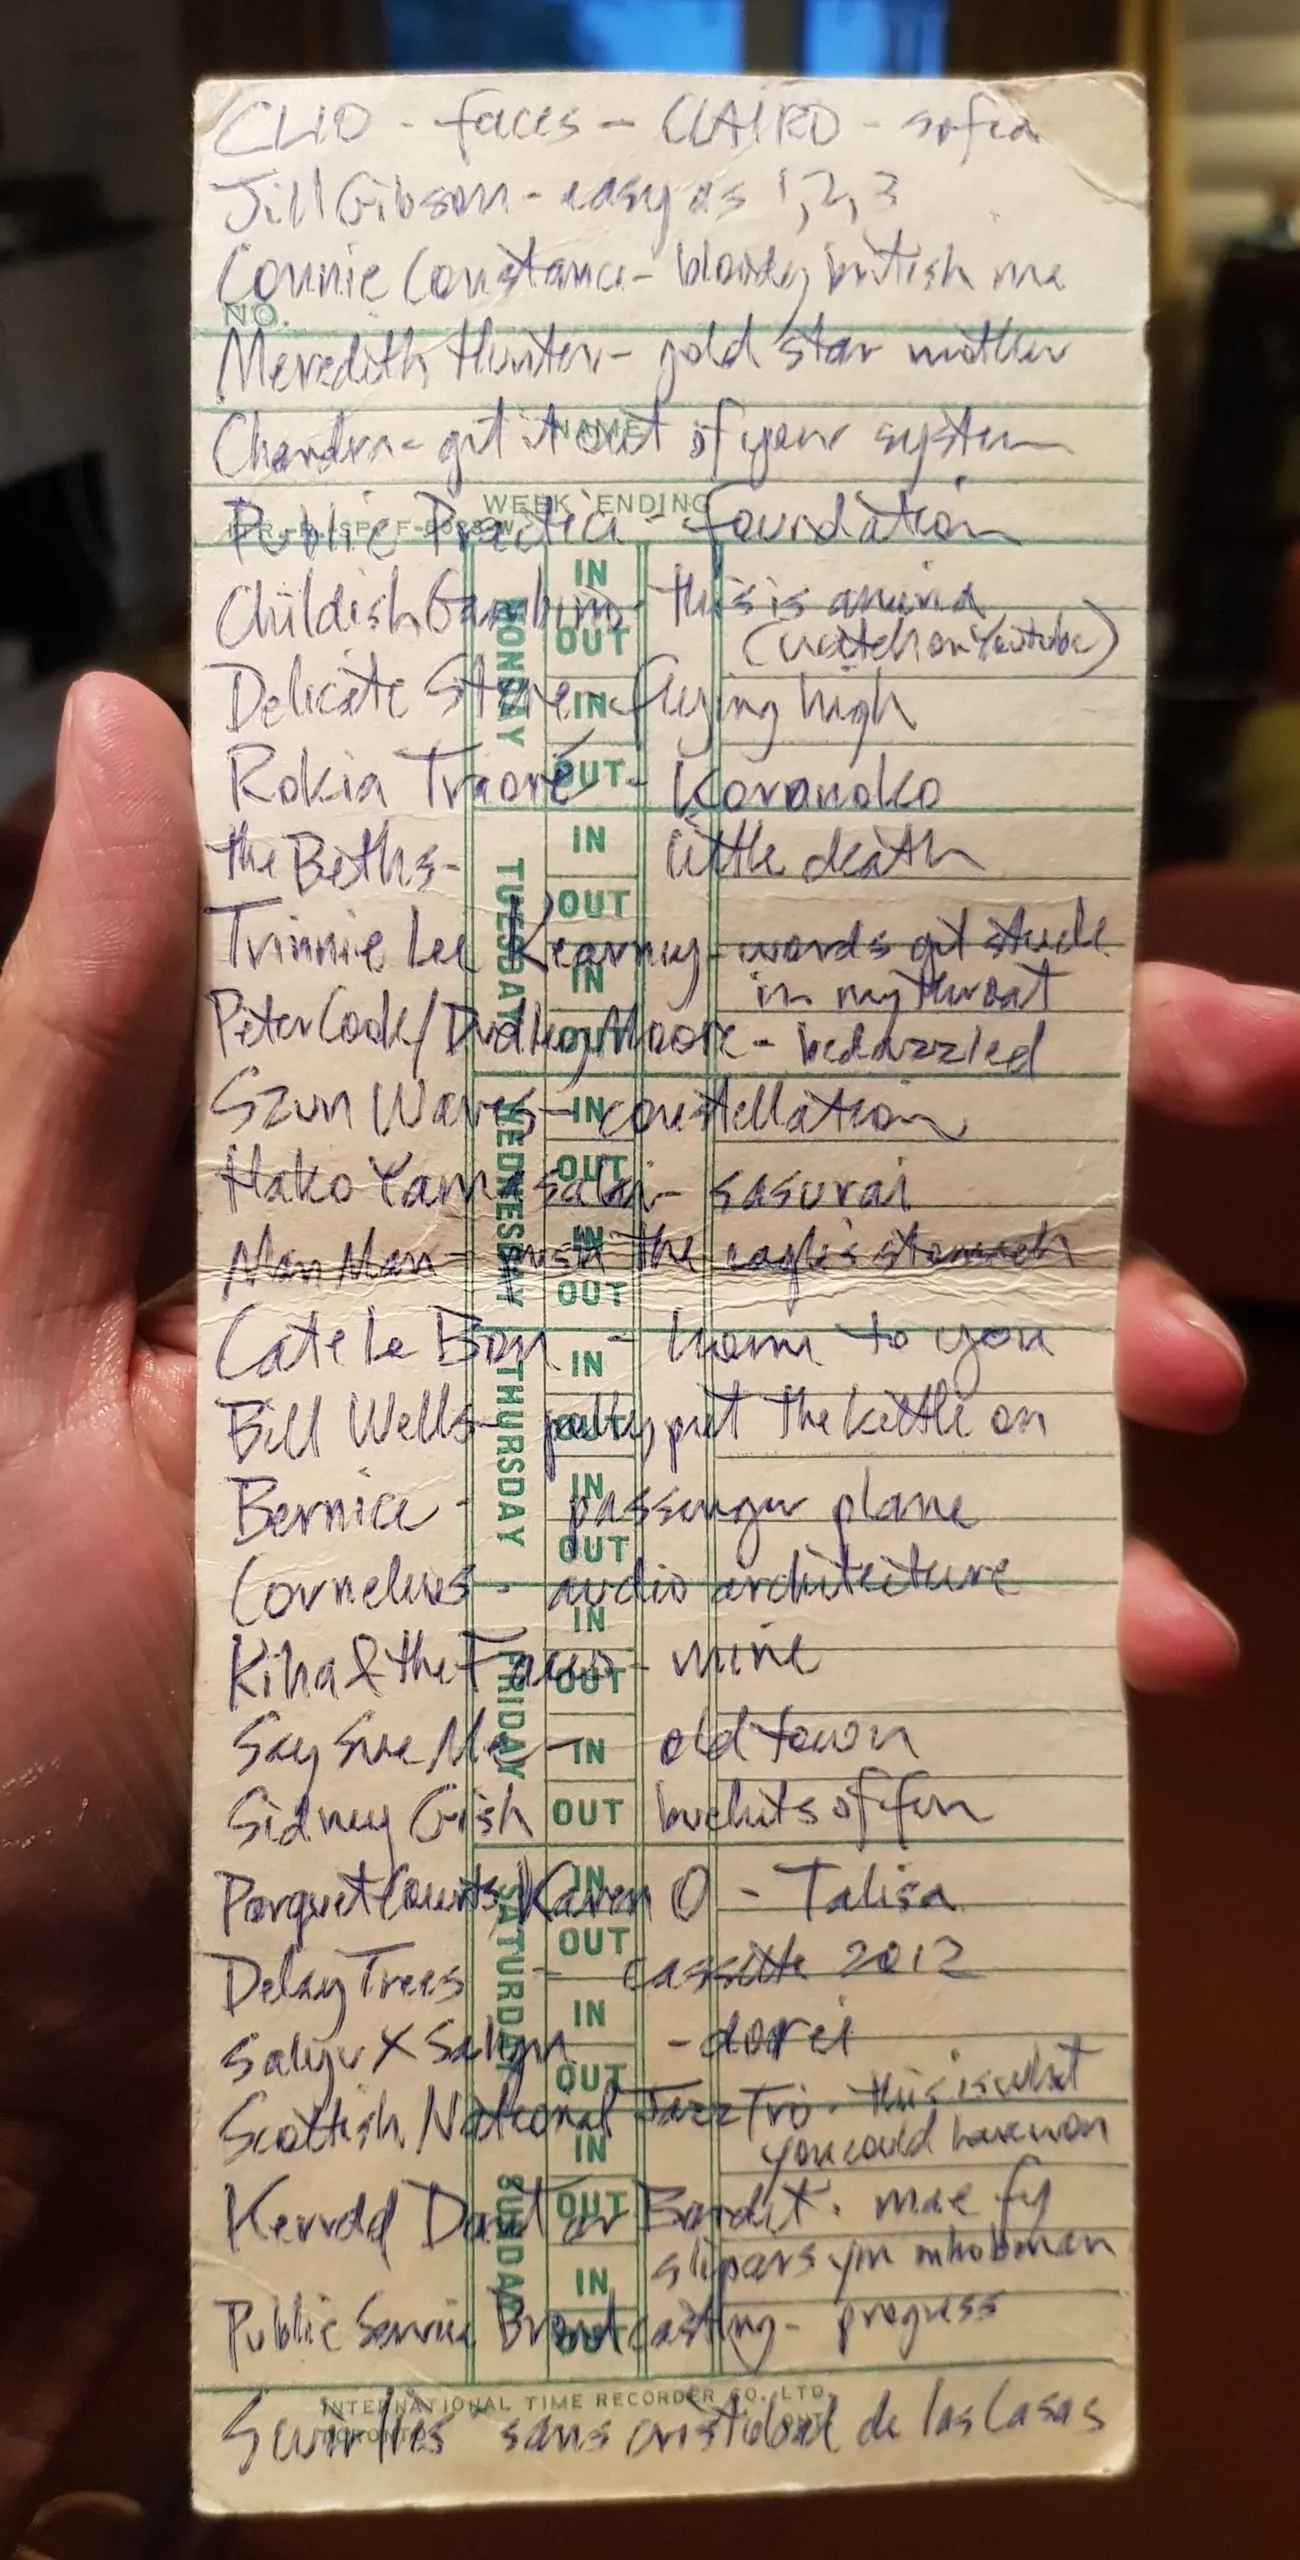 CLIO - faces - CLAIRO - sofia
Jill Gibson - easy as 1, 2, 3
Connie Constance - bloody british me
NO.
Meredith Hunter - gold star mother
NAME
Chandra - get it out of your system
WEEK ENDING
Public Practice - foundation
IN
Childish Gambino - this is america
OUT
(watch on Youtube)
MONDAY
IN
Delicate Steve - flying high
OUT
Rokia Traoré - Koronoko
IN
the Beths - little death
OUT
TUESDAY
Trinnie Lee Kearney - words get stuck
IN
in my throat
OUT
Peter Cook/Dudley Moore - bedazzled
IN
Szun Waves - constellation
OUT
WEDNESDAY
Hako Yamasaki - sasurai
IN
Man Man - push the eagle's stomach
OUT
Cate Le Bon - home to you
IN
THURSDAY
Bill Wells - polly put the kettle on
OUT
IN
Bernice - passenger plane
OUT
Cornelius - audio architecture
IN
Kiha & the Faces - mine
OUT
FRIDAY
Say Sue Me - old town
IN
Sidney Gish buckets of fun
OUT
IN
Parquet Courts, Karen O - Talisa
OUT
SATURDAY
Delay Trees - cassette 2012
IN
Salyu X Salyu - dorei
OUT
Scottish National Jazz Trio - this is what
IN
you could have won
OUT
SUNDAY
Kerrdd Dant ar Bandit. mae fy
IN
slipars yn mhobman
OUT
Public Service Broadcasting - progress
INTERNATIONAL TIME RECORDER CO. LTD.
TORONTO
sans cristobal de las Casas